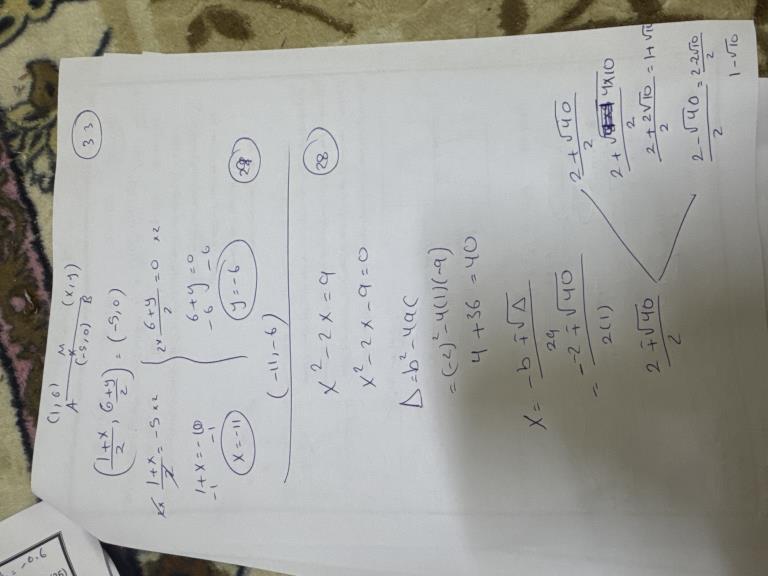 33
(1,6) M (x,y)
A (-5,0) B
(1+x/2, 6+y/2) = (-5,0)
2x 1+x/2 = -5 x2
1+x=-10
-1 -1
x=-11
2x 6+y/2 = 0 x2
6+y=0
-6 -6
y=-6
(-11,-6)
28
x²-2x=9
x²-2x-9=0
Δ=b²-4ac
=(-2)²-4(1)(-9)
4+36=40
x = -b ∓ √Δ / 2a
= -2 ∓ √40 / 2(1)
2 ∓ √40 / 2
2+√40 / 2
2+√4x10 / 2
2+2√10 / 2 = 1+√10
2-√40 / 2 = 2-2√10 / 2
1-√10
=-0.6